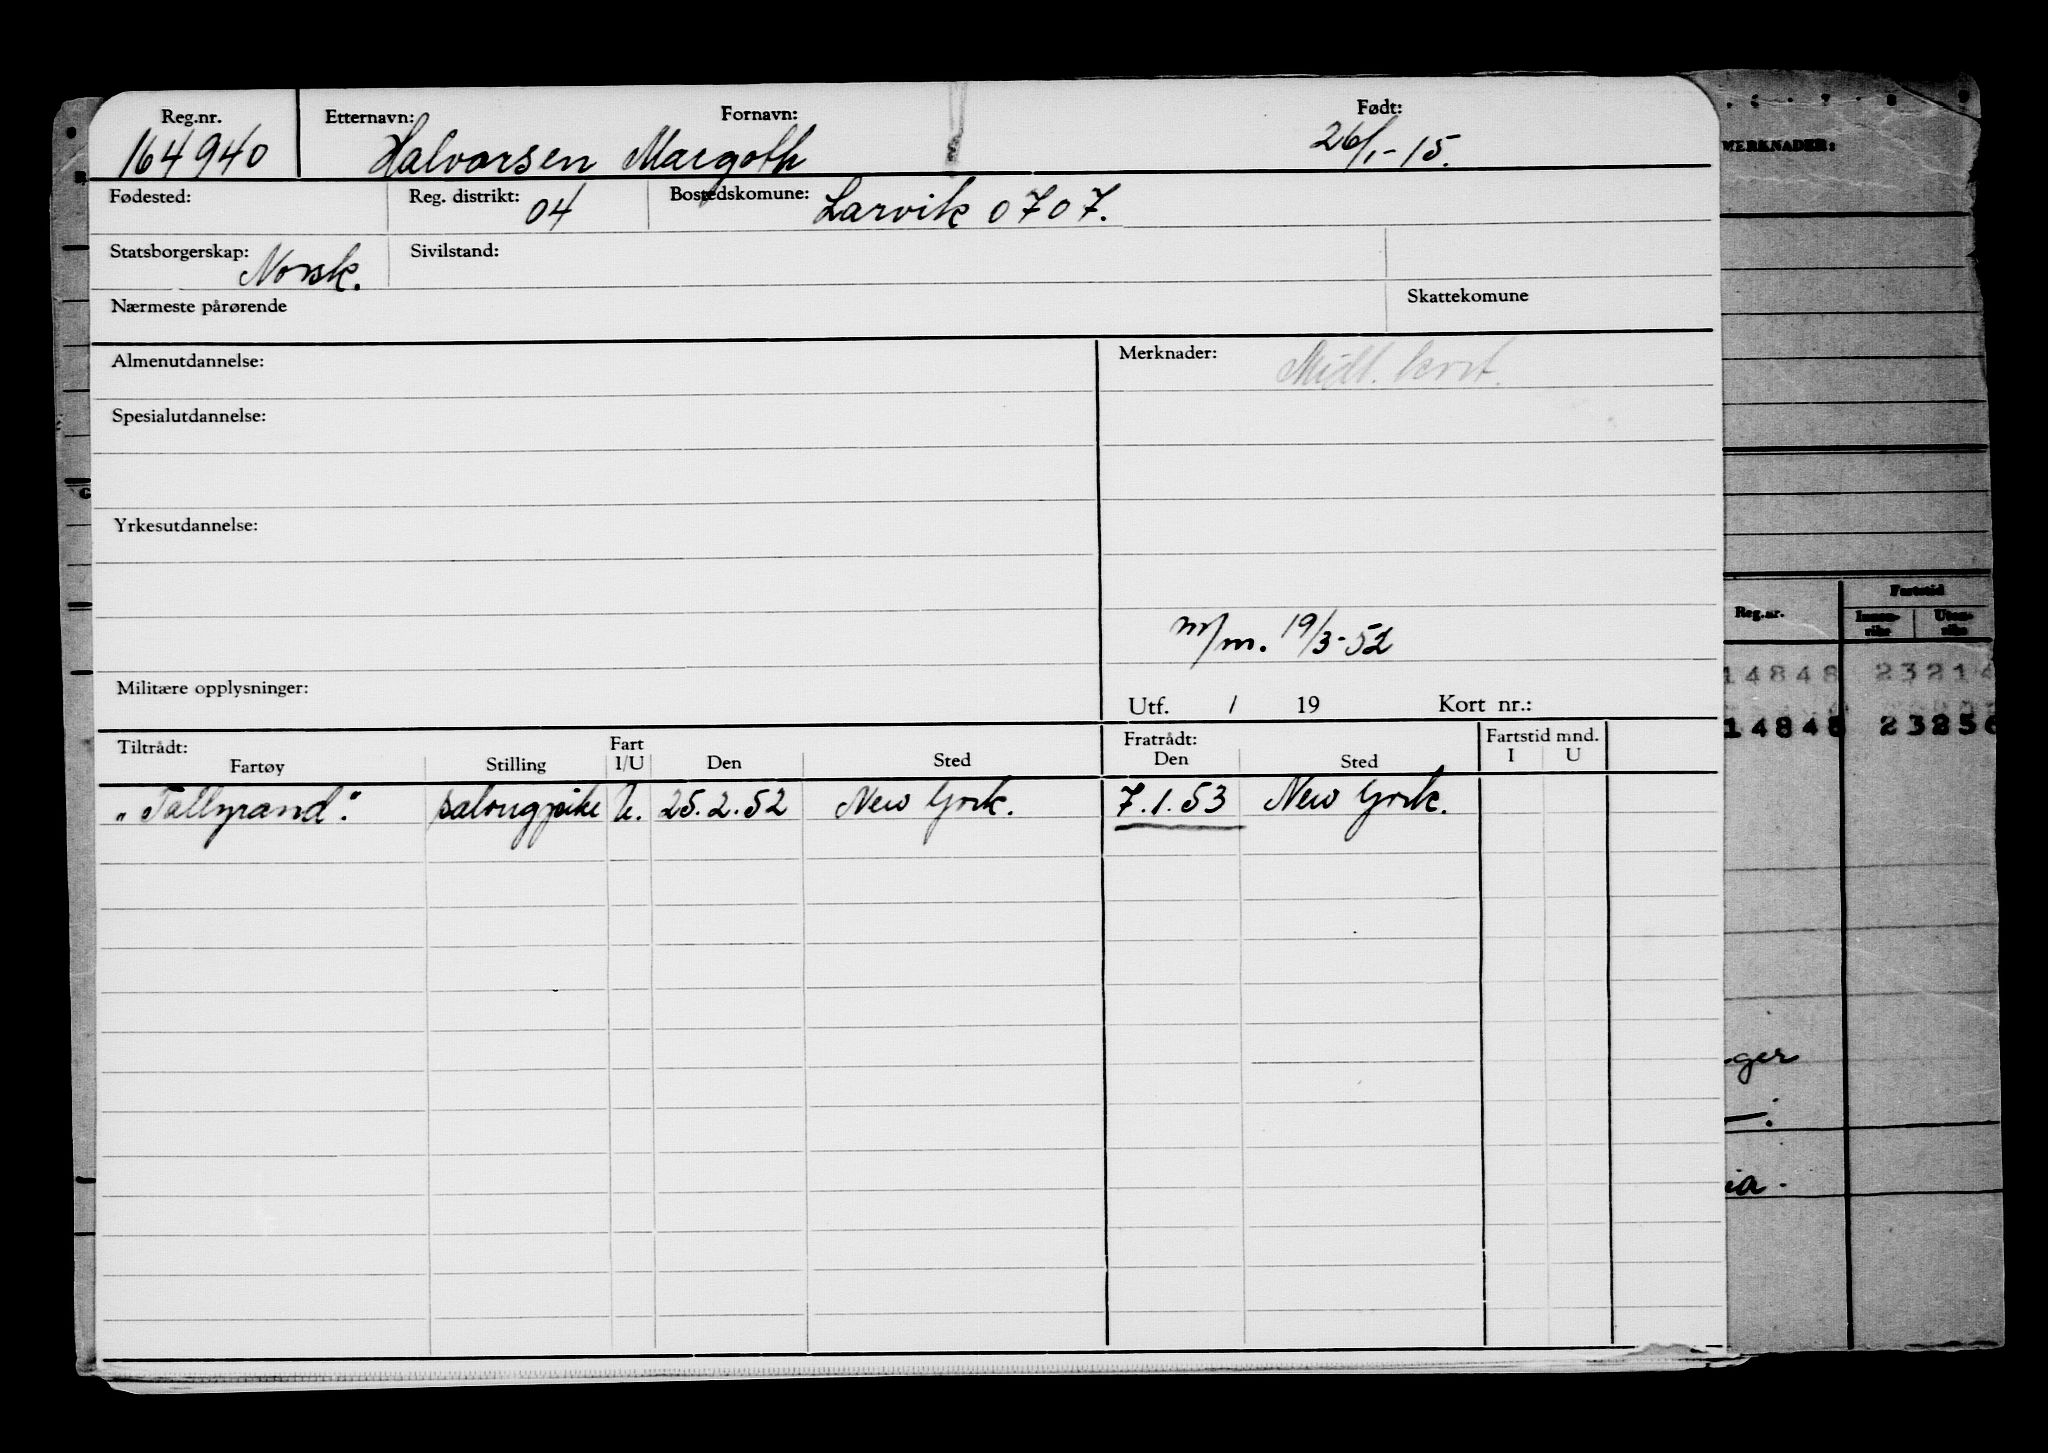 Reg.nr. Etternavn: Fornavn: Født:
164940 Halvorsen Margoth 26/1-15.
Fødested: Reg. distrikt: 04 Bostedskomune: Larvik 0707.
Statsborgerskap: Norsk. Sivilstand:
Nærmeste pårørende Skattekomune
Almenutdannelse: Merknader: Midl. kort.
Spesialutdannelse:
Yrkesutdannelse:
m/m. 19/3-52
Militære opplysninger: Utf. / 19 Kort nr.:
Tiltrådt: Fart Fratrådt: Fartstid mnd.
Fartøy Stilling I/U Den Sted Den Sted I U
"Tallyrand". salongpike U. 25.2.52 New York. 7.1.53 New York.
MERKNADER:
Fartstid
Reg.nr. Innen-riks Uten-riks
14848 23214
14848 23256
ger
ia.